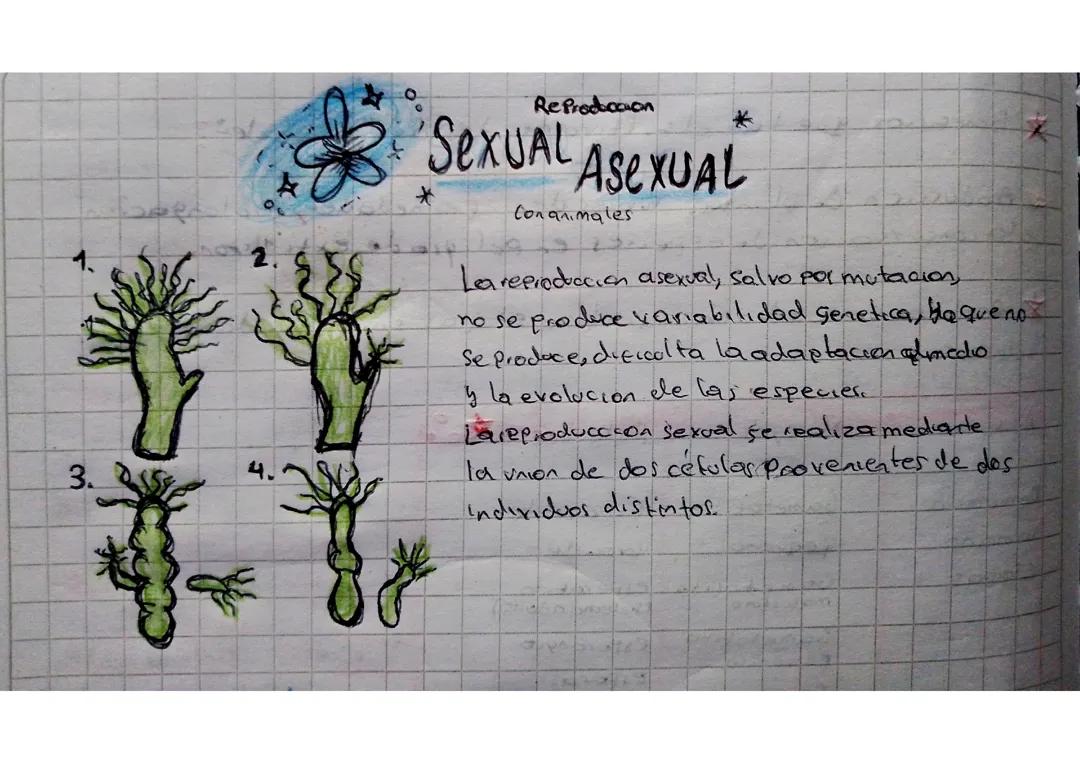 Reproduccion
Sexual
Asexual
Con animales
1.
2.
3.
4.
La reproduccion asexual, salvo por mutacion,
no se produce variabilidad genetica, ya que no
se produce, dificulta la adaptacion al medio
y la evolucion de las especies.
La reproduccion sexual se realiza mediante
la union de dos células provenientes de dos
individuos distintos.